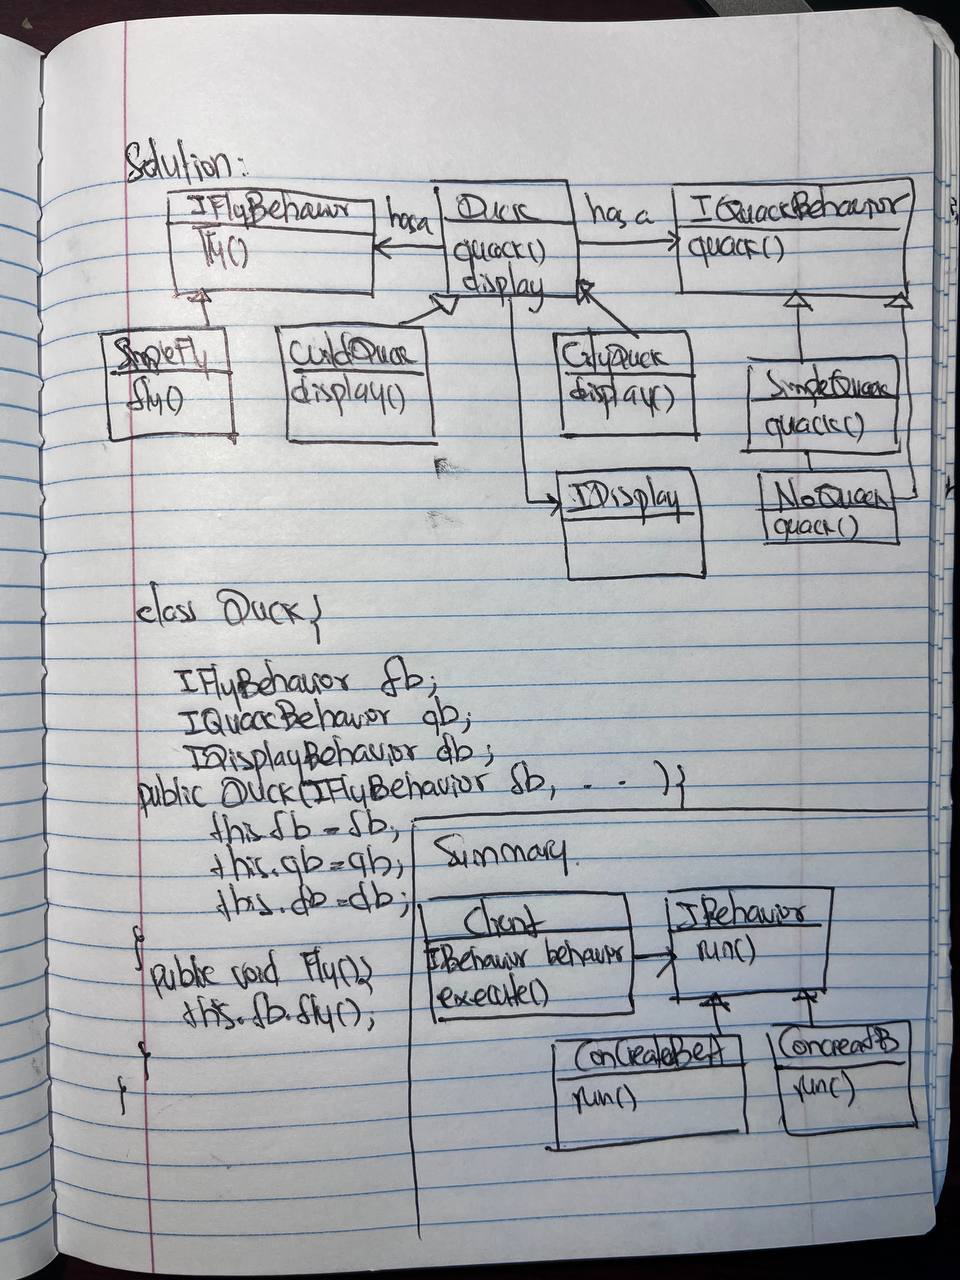 Solution:
IFlyBehavior
Fly()
has a
Duck
quack()
display
has a
IQuackBehavior
quack()
SimpleFly
fly()
WildDuck
display()
CityDuck
display()
SimpleQuack
quack()
IDisplay
NoQuack
quack()
class Duck {
IFlyBehavior fb;
IQuackBehavior qb;
IDisplayBehavior db;
public Duck(IFlyBehavior fb, - - ){
this.fb = fb;
this.qb = qb;
this.db = db;
}
public void Fly(){
this.fb.fly();
}
}
Summary.
Client
IBehavior behavior
execute()
IBehavior
run()
ConCreateBeA
run()
ConcreatB
run()